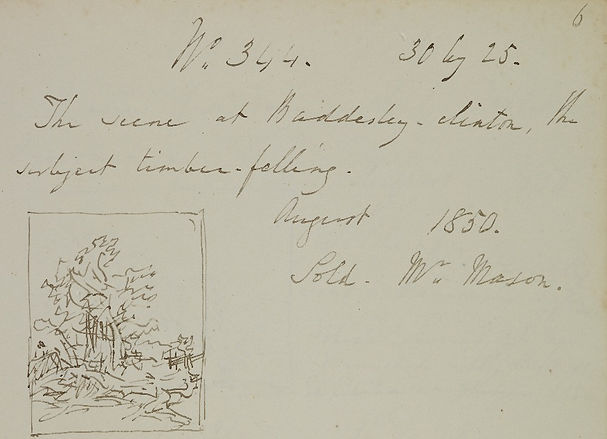 6
No. 344. 30 by 25.
The scene at Baddesley-clinton, the
subject timber-felling.
August 1850.
Sold. Mr Mason.